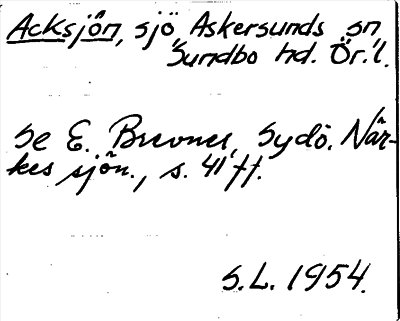 Acksjön, sjö, Askersunds sn
Sundbo hd. Ör. l.
se E. Brevner, Sydö. När-
kes sjön., s. 41 ff.
S.L. 1954.